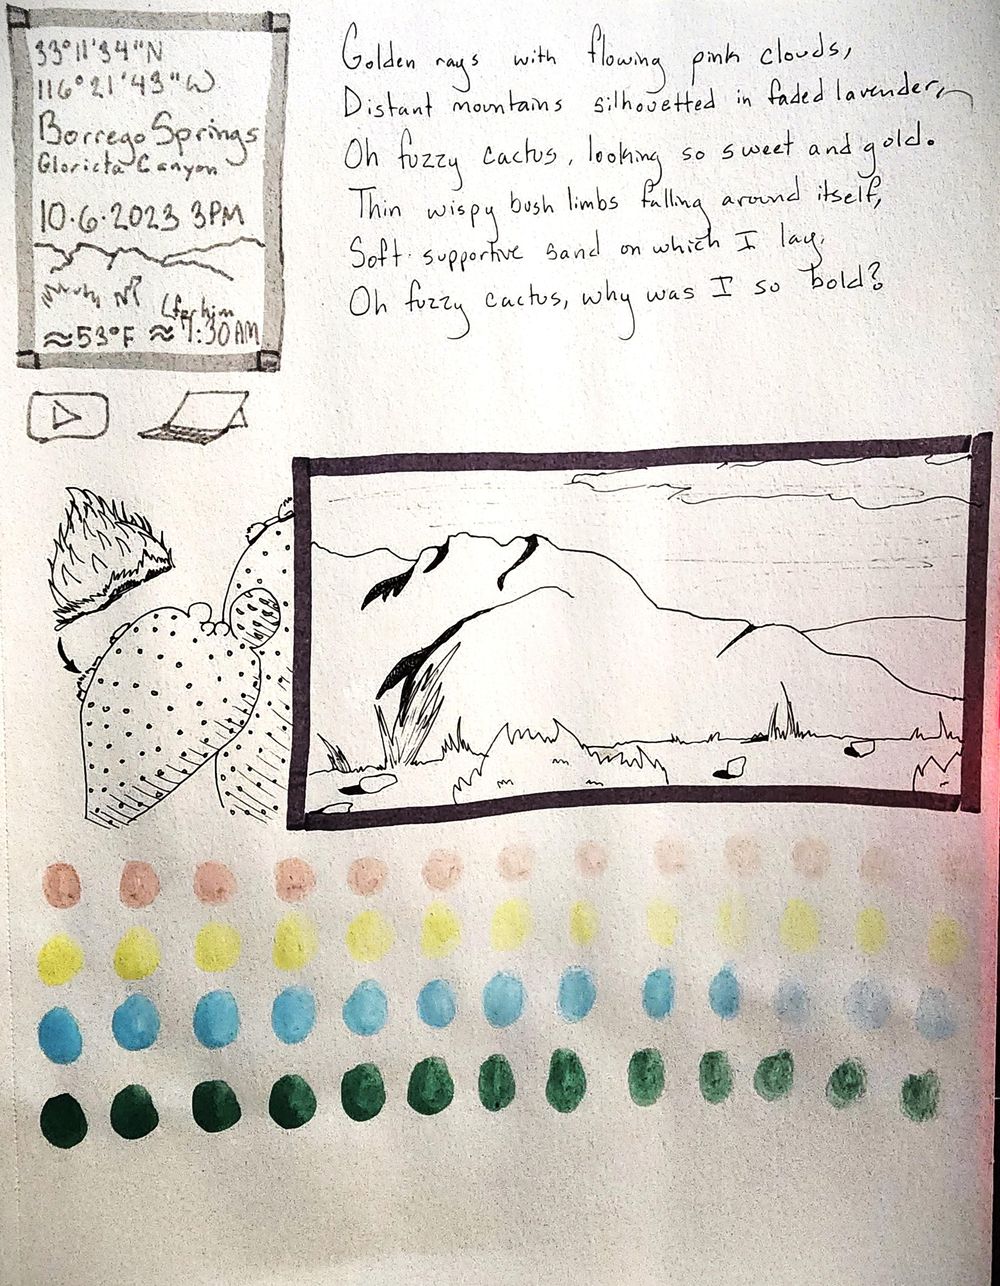 33°11'34"N
116°21'43"W
Borrego Springs
Glorieta Canyon
10·6·2023 3PM
≈53°F ≈ 7:30AM
Golden rays with flowing pink clouds,
Distant mountains silhouetted in faded lavender,
Oh fuzzy cactus, looking so sweet and gold.
Thin wispy bush limbs falling around itself,
Soft supportive sand on which I lay,
Oh fuzzy cactus, why was I so bold?